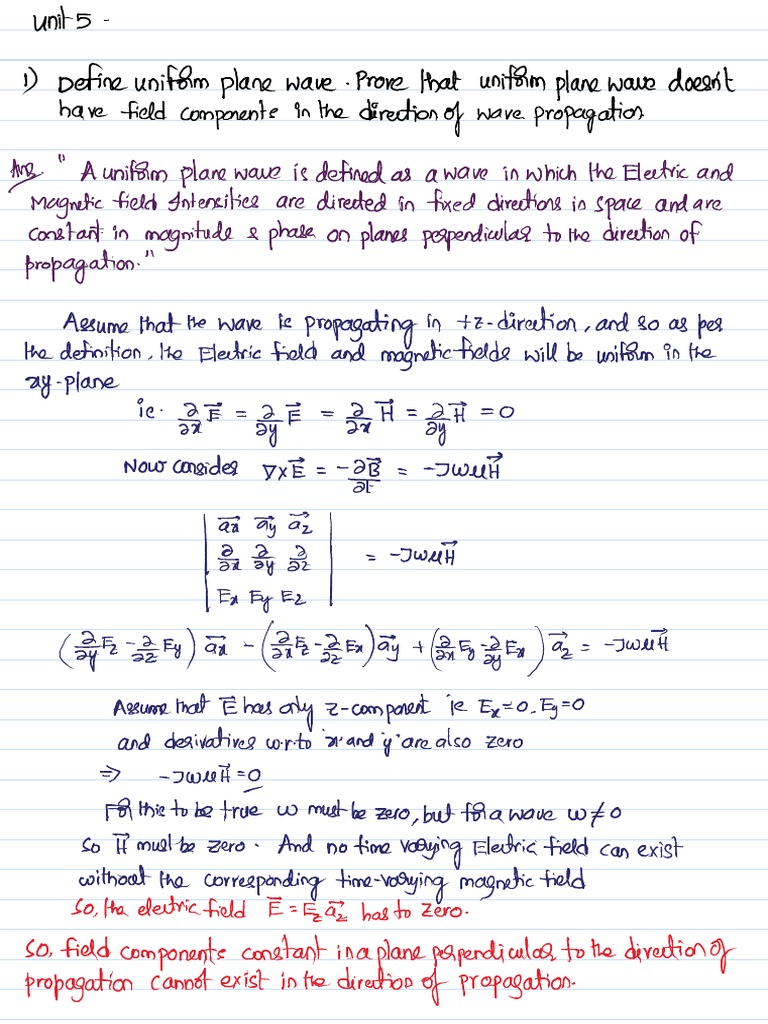 Unit 5 -
1) Define uniform plane wave. Prove that uniform plane wave doesn't
have field components in the direction of wave propagation
Ans "A uniform plane wave is defined as a wave in which the Electric and
Magnetic field Intensities are directed in fixed directions in space and are
constant in magnitude & phase on planes perpendicular to the direction of
propagation."
Assume that the wave is propagating in +z-direction, and so as per
the definition, the Electric field and magnetic fields will be uniform in the
xy-plane
ie. ∂/∂x E⃗ = ∂/∂y E⃗ = ∂/∂x H⃗ = ∂/∂y H⃗ = 0
Now consider ∇×E⃗ = -∂B⃗/∂t = -JωμH⃗
| a⃗x a⃗y a⃗z |
| ∂/∂x ∂/∂y ∂/∂z | = -JωμH⃗
| Ex Ey Ez |
(∂/∂y Ez - ∂/∂z Ey) a⃗x - (∂/∂x Ez - ∂/∂z Ex) a⃗y + (∂/∂x Ey - ∂/∂y Ex) a⃗z = -JωμH⃗
Assume that E⃗ has only z-component ie Ex=0, Ey=0
and derivatives w.r.to 'x' and 'y' are also zero
⇒ -JωμH⃗ = 0
For this to be true ω must be zero, but for a wave ω ≠ 0
So H⃗ must be zero. And no time varying Electric field can exist
without the corresponding time-varying magnetic field
So, the electric field E⃗ = Ez a⃗z has to zero.
So, field components constant in a plane perpendicular to the direction of
propagation cannot exist in the direction of propagation.